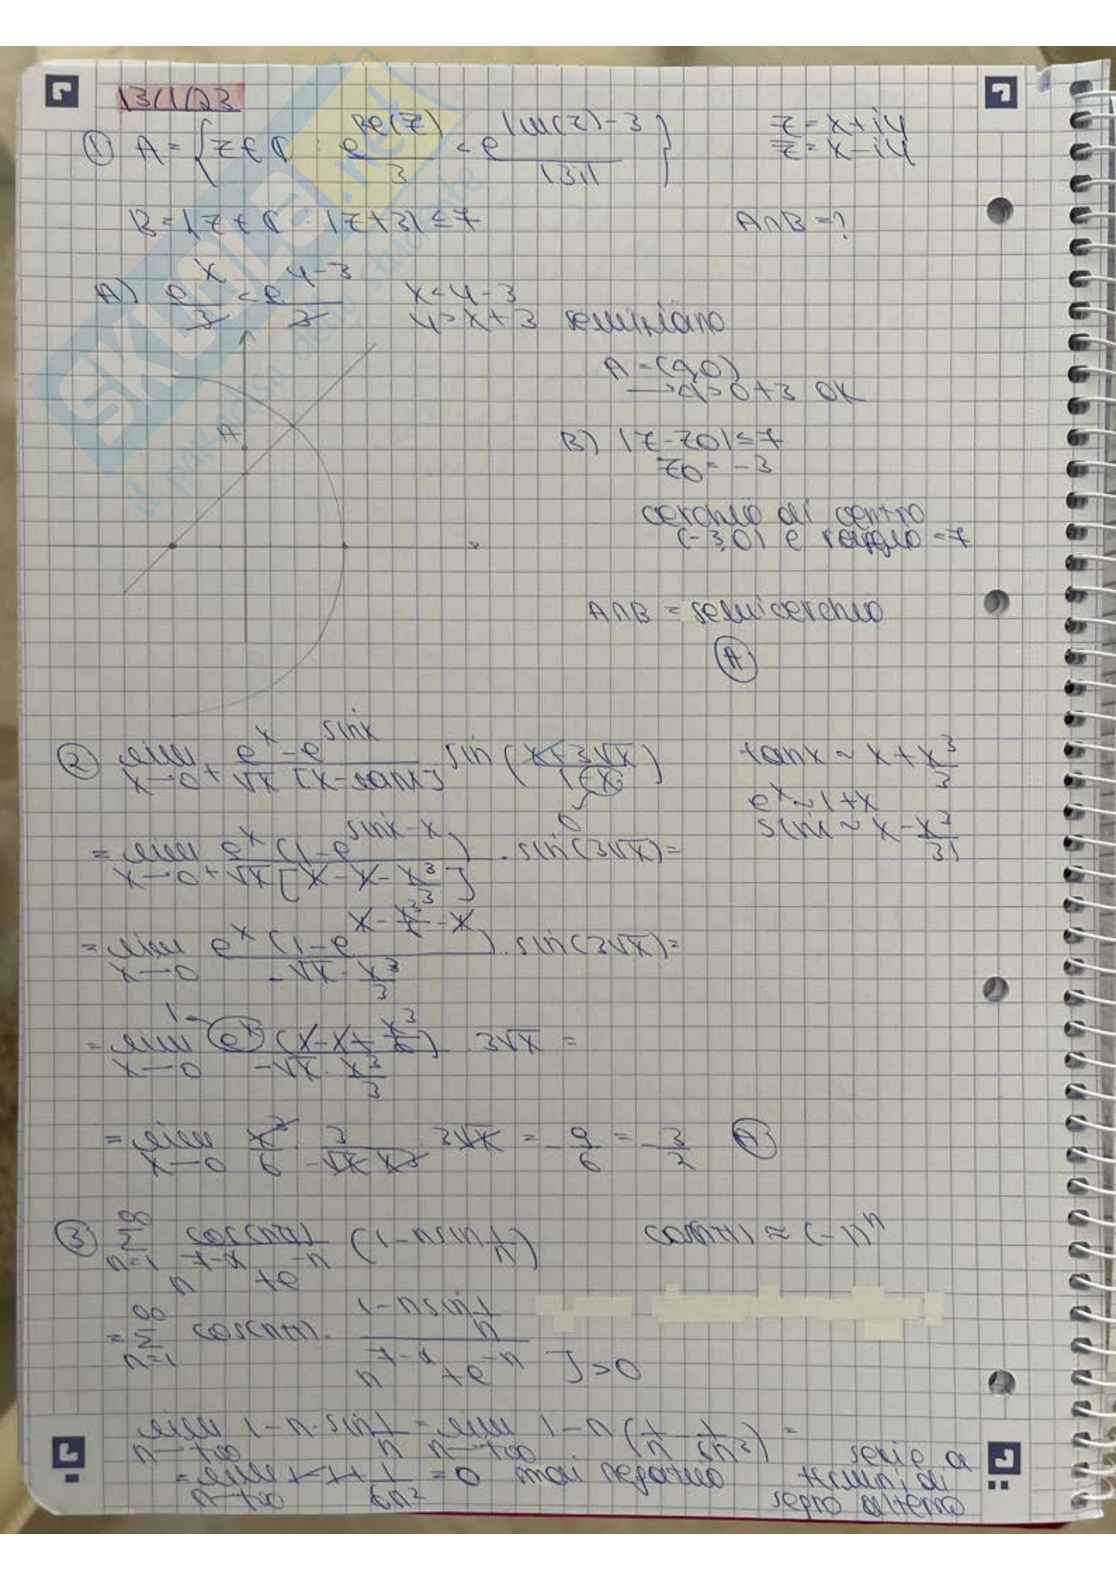 13/1/23
① A = {z ∈ ℂ : e^Re(z)/3 < e^Im(z)-3/|3i|}
z = x+iy
z̄ = x-iy
B = {z ∈ ℂ : |z+3| ≤ 7
A∩B = ?
A) e^x/3 < e^y-3/3 x < y-3
y > x+3 semipiano
A = (4,0)
→ 4>0+3 OK
A
B) |z-z0| ≤ 7
z0 = -3
cerchio di centro
(-3,0) e raggio = 7
A∩B = semicerchio
Ⓐ
② lim x→0+ e^x - e^sinx / √x [x-tanx] sin (x+3√x / 1+x²)
0
tanx ~ x + x³/3
e^x ~ 1+x
sinx ~ x - x³/3!
= lim x→0+ e^x (1-e^sinx-x) / √x [x-x-x³/3] · sin(3√x) =
= lim x→0 e^x (1-e^x-x³/6-x) / -√x · x³/3 · sin(3√x) =
= lim x→0 1 e^x (x-x+x³/6) / -√x · x³/3 · 3√x =
= lim x→0 x³/6 · 3/-√x x³ · 3√x = -9/6 = -3/2 Ⓐ
③ ∞Σn=1 cos(nπ) / n^7-α + e^-n (1-n sin 1/n) cos(nπ) ≈ (-1)^n
= ∞Σn=1 cos(nπ) · 1-n sin 1/n / n^7-α + e^-n ] >0
lim n→+∞ 1-n·sin 1/n = lim n→+∞ 1-n (1/n - 1/6n³) =
= lim n→+∞ 1-1+ 1/6n² = 0 mai negativo
serie a
termini di
segno alterno
SKUOLA.net